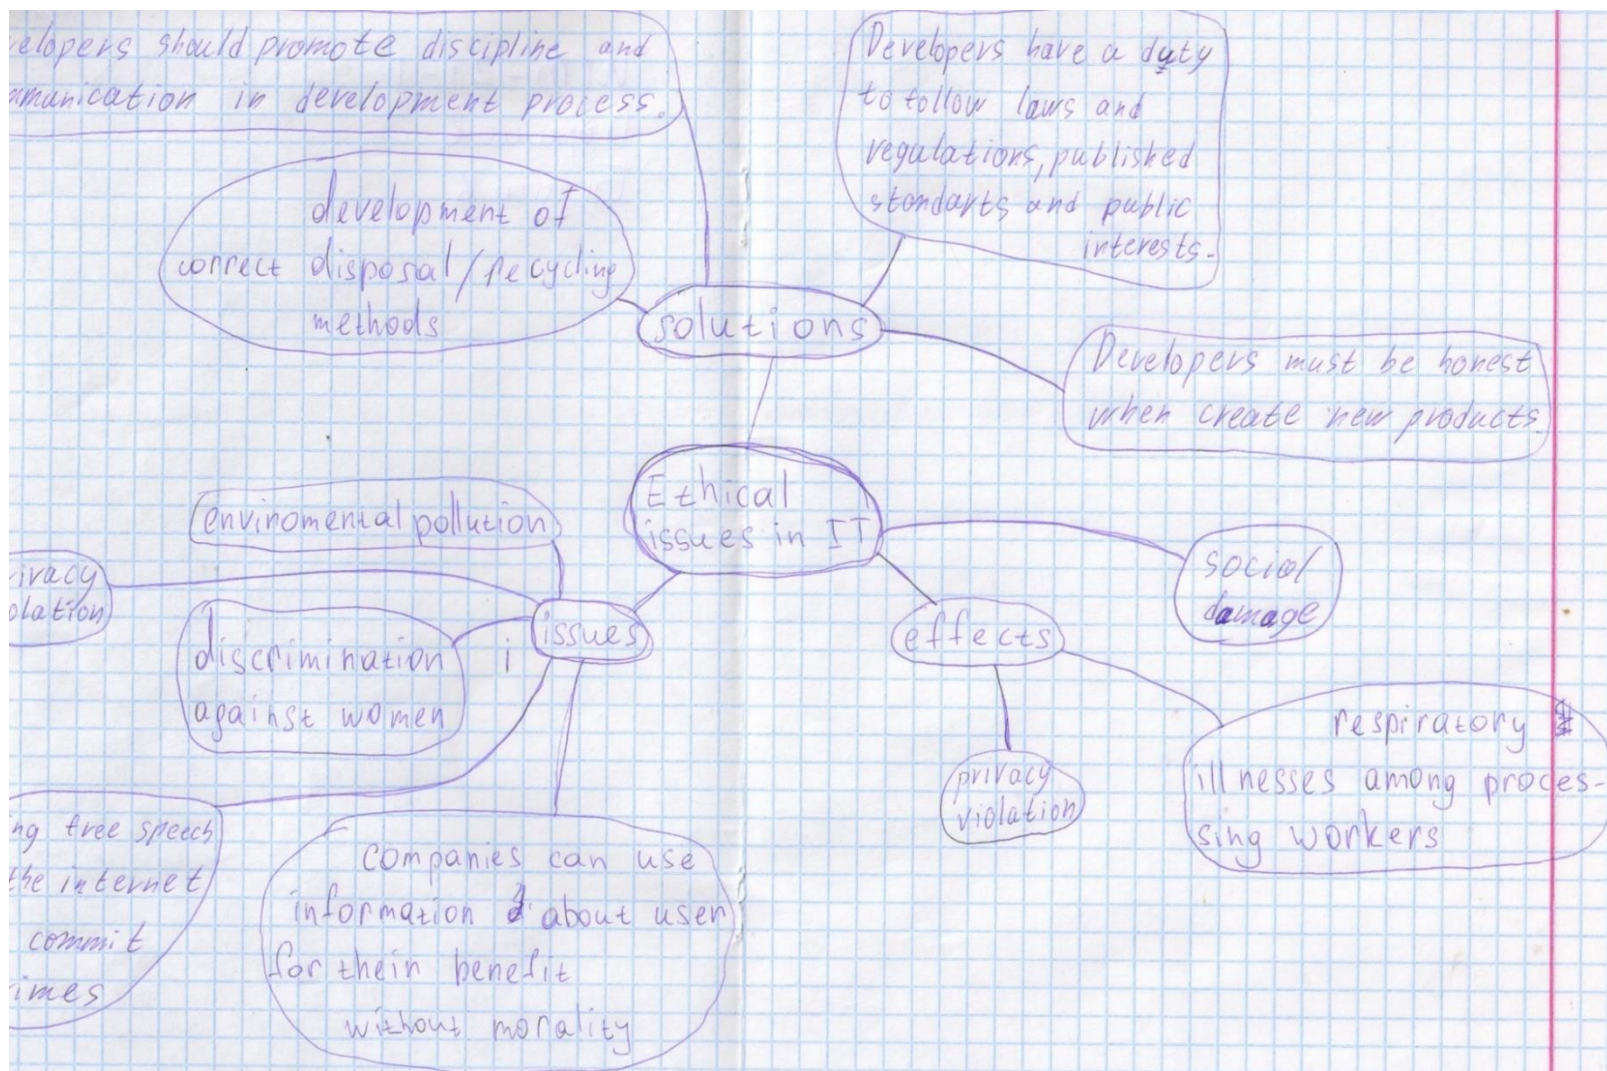 elopers should promote discipline and
mmunication in development process.
Developers have a duty
to follow laws and
regulations, published
standarts and public
interests.
development of
correct disposal/recycling
methods
solutions
Developers must be honest
when create new products.
Ethical
issues in IT
enviromental pollution
ivacy
olation
discrimination
against women
i
issues
effects
social
damage
privacy
violation
respiratory
illnesses among proces-
sing workers
ng free speech
the internet
commit
imes
companies can use
information about user
for their benefit
without morality